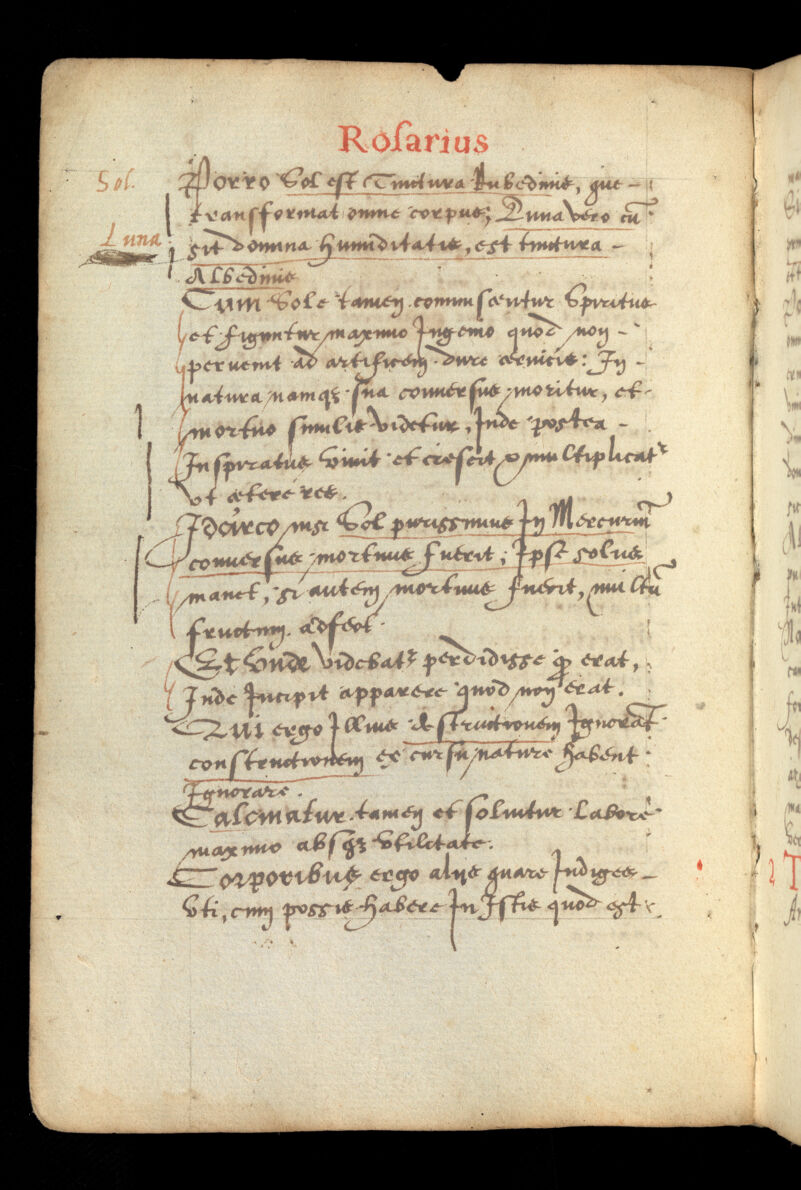 Rosarius
Sol.
Porro Sol est Tinctura Rubedinis, que –
transformat omne corpus; Luna vero cū
Luna
sit domina humiditatis, est tinctura –
Albedinis
Cum Sole tamen commiscentur Spiritus
et figuntur maximo Ingenio quod non –
pervenit ad artificem dure cervicis: In –
natura namqȝ sua conversus moritur, et
mortuo similis videtur, Inde postea –
Inspiratus vivit et crescit & multiplicatr
vt cetere res.
Idcirco nisi Sol purissimus In Mercuriū
conversus mortuus fuerit, Ipse solus
manet, si autem mortuus fuerit, multū
fructum adfert.
Et Vnde videbatr perdidisse qd erat,
Inde Incipit apparere quod non erat.
Qui ergo Illius destructionem Ignorāt
constructionem ex cursu nature habent
Ignorare.
Calcinatur tamen et soluitur labore
maximo absqȝ vtilitate.
Corporibus ergo alijs quare Indiges –
Vti, cum possis habere In Istis quod est